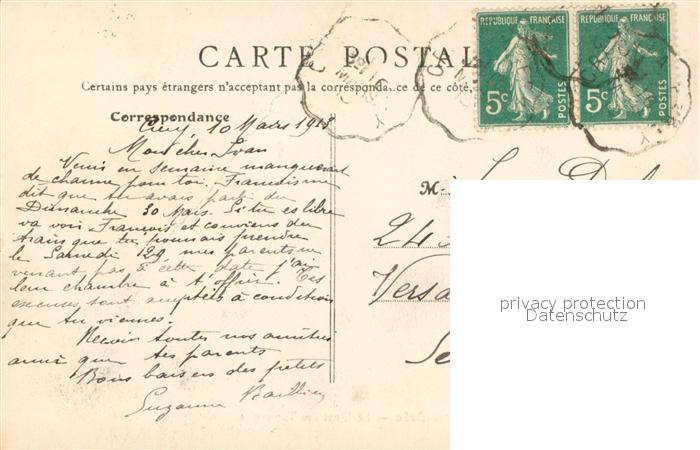 CARTE POSTAL
Certains pays étrangers n'acceptant pas la correspondance de ce côté,
RÉPUBLIQUE FRANÇAISE
5c
POSTES
RÉPUBLIQUE FRANÇAISE
5c
POSTES
Correspondance
10 Mars
Mon cher
Venir en semaine manquerait
de charme pour toi. François me
dit que tu avais parlé du
Dimanche 30 Mars. Si tu es libre
va voir François et conviens du
train que tu pourrais prendre
le Samedi 29, mes parents ne
venant pas à cette date j'ai
leur chambre à t'offrir. Tes
excuses sont acceptées à condition
que tu viennes.
Reçois toutes nos amitiés
ainsi que tes parents
Bons baisers des petits
Suzanne
M
24
Versa
privacy protection
Datenschutz